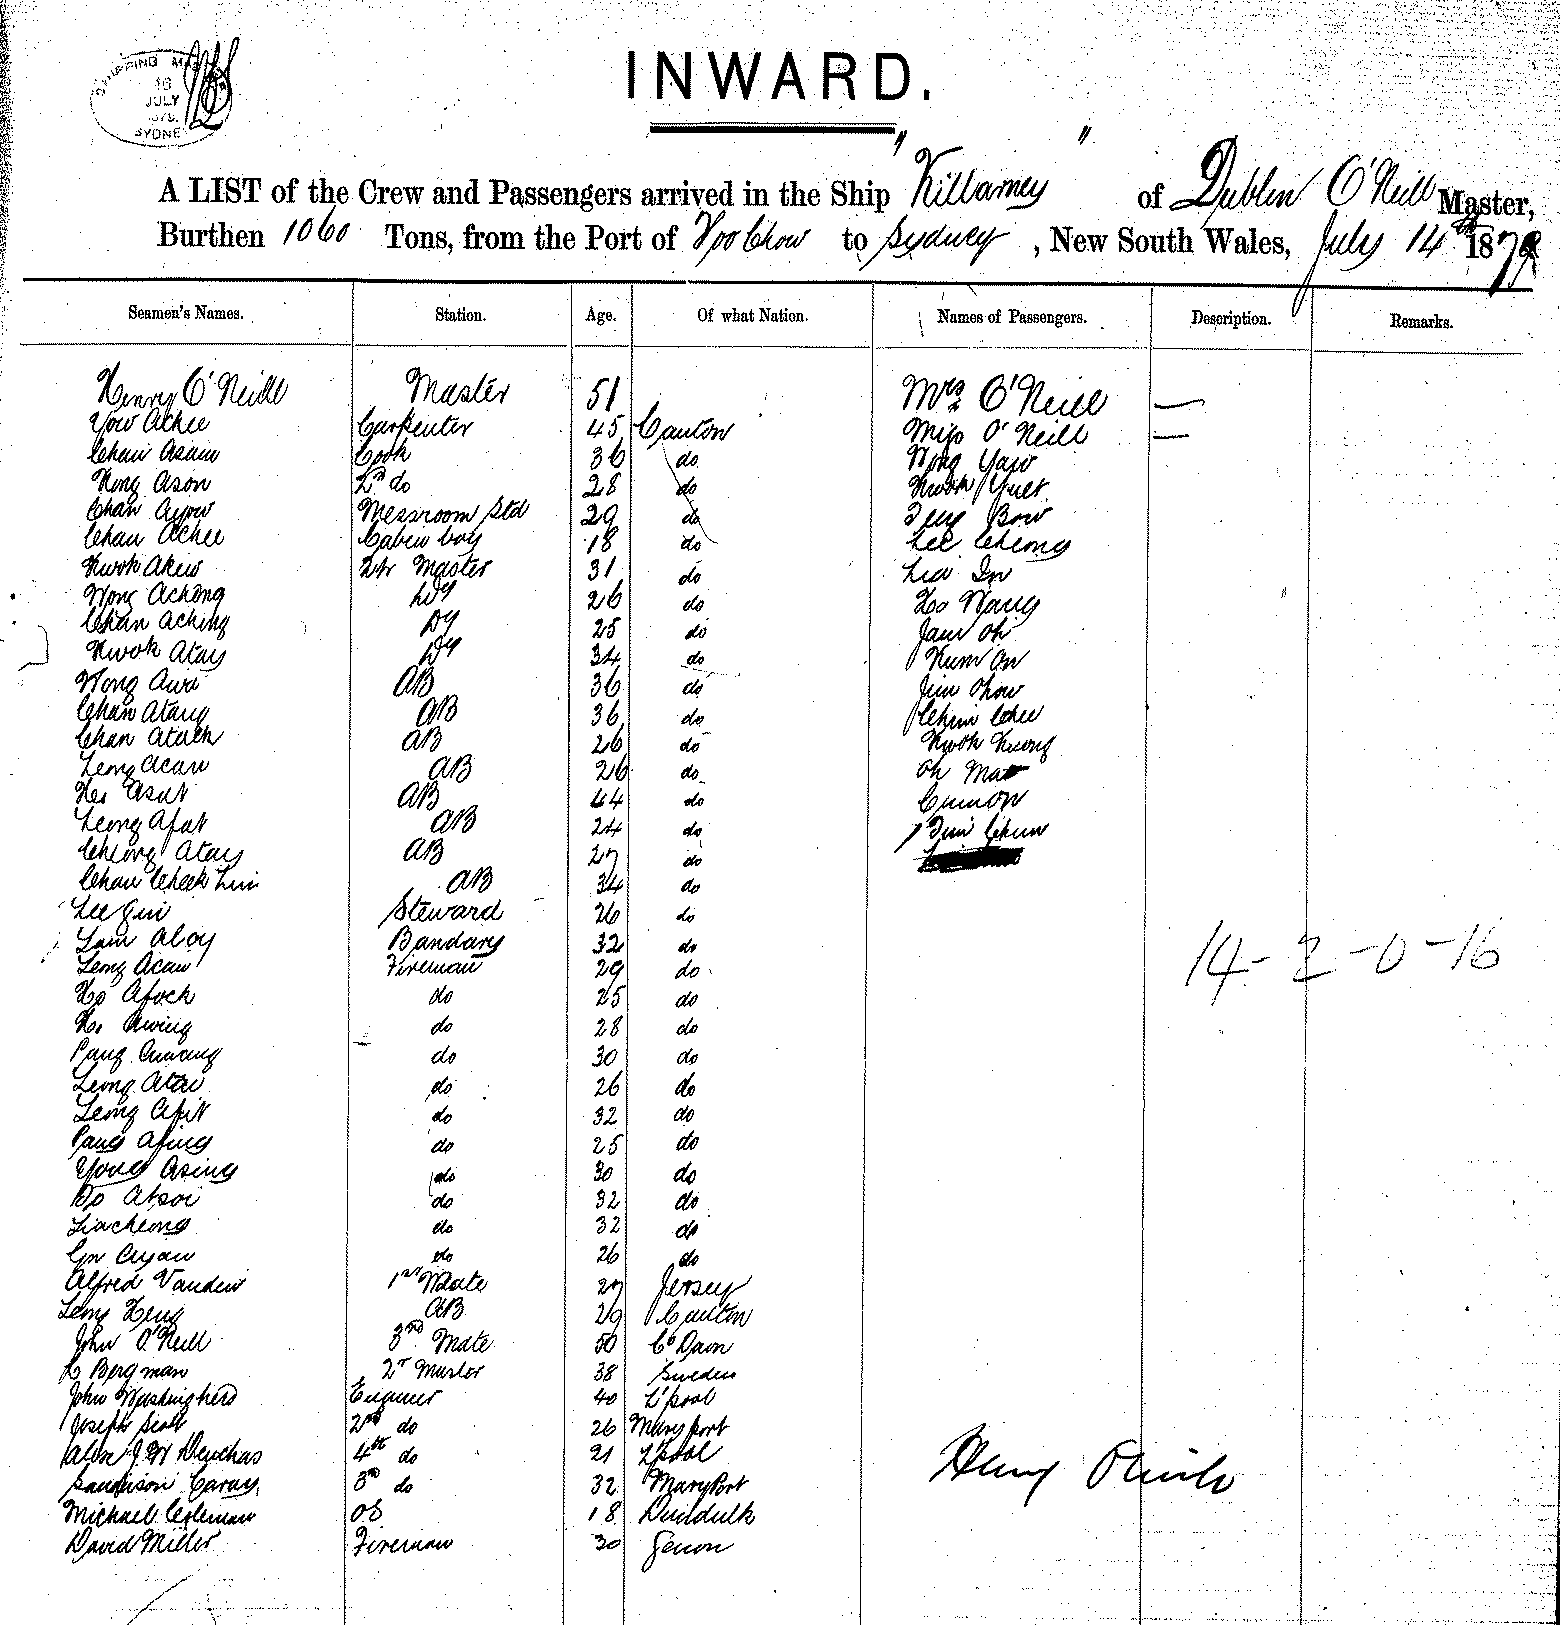 SHIPPING MASTER
16
JULY
1879.
SYDNEY
INWARD.
A LIST of the Crew and Passengers arrived in the Ship "Killarney" of Dublin O'Neill Master,
Burthen 1060 Tons, from the Port of Foo Chow to Sydney, New South Wales, July 14th 1879
Seamen's Names. Station. Age. Of what Nation. Names of Passengers. Description. Remarks.
Henry O'Neill Master 51 Mrs O'Neill —
Yow Achee Carpenter 45 Canton Miss O'Neill —
Chan Asam Cook 36 do Wong Yaw
Kong Ason 2nd do 28 do Kwok Yuet
Chan Ayow Messroom Std 29 do Bow
Chan Achee Cabin boy 18 do Lee Cheong
Kwok Akew Qtr Master 31 do
Wong Achong Do 26 do Ho Wang
Chan Aching Do 25 do
Kwok Atay Do 34 do Kum On
Wong Awa AB 36 do Jim Chow
Chan Atang AB 36 do Chim Chee
Chan Atuck AB 26 do Kwok Kuong
Leong Acan AB 26 do Oh Mat
Ho Asat AB 44 do
Leong Afat AB 24 do Chun
Cheong Atay AB 27 do
Chan Cheek Lui AB 34 do
Lee Gui Steward 26 do
Lam Aloy Bandary 32 do
Leong Acan Fireman 29 do
14-2-0-16
Ho Afock do 25 do
Ho Awing do 28 do
Pang do 30 do
Leong Atai do 26 do
Leong Afit do 32 do
Pang Afing do 25 do
Yong Asing do 30 do
Atsoi do 32 do
Liacheong do 32 do
do 26 do
Alfred Vaudin 1st Mate 27 Jersey
Leong Heng AB 29 Canton
John O'Neill 3rd Mate 50 Co Down
Bergman 2r Master 38 Sweden
John Engineer 40 L'pool
Joseph Scott 2nd do 26 Maryport
4th do 21 L'pool
3rd do 32 MaryPort
Henry O'Neill
Michael Coleman OS 18 Dundalk
David Miller Fireman 30